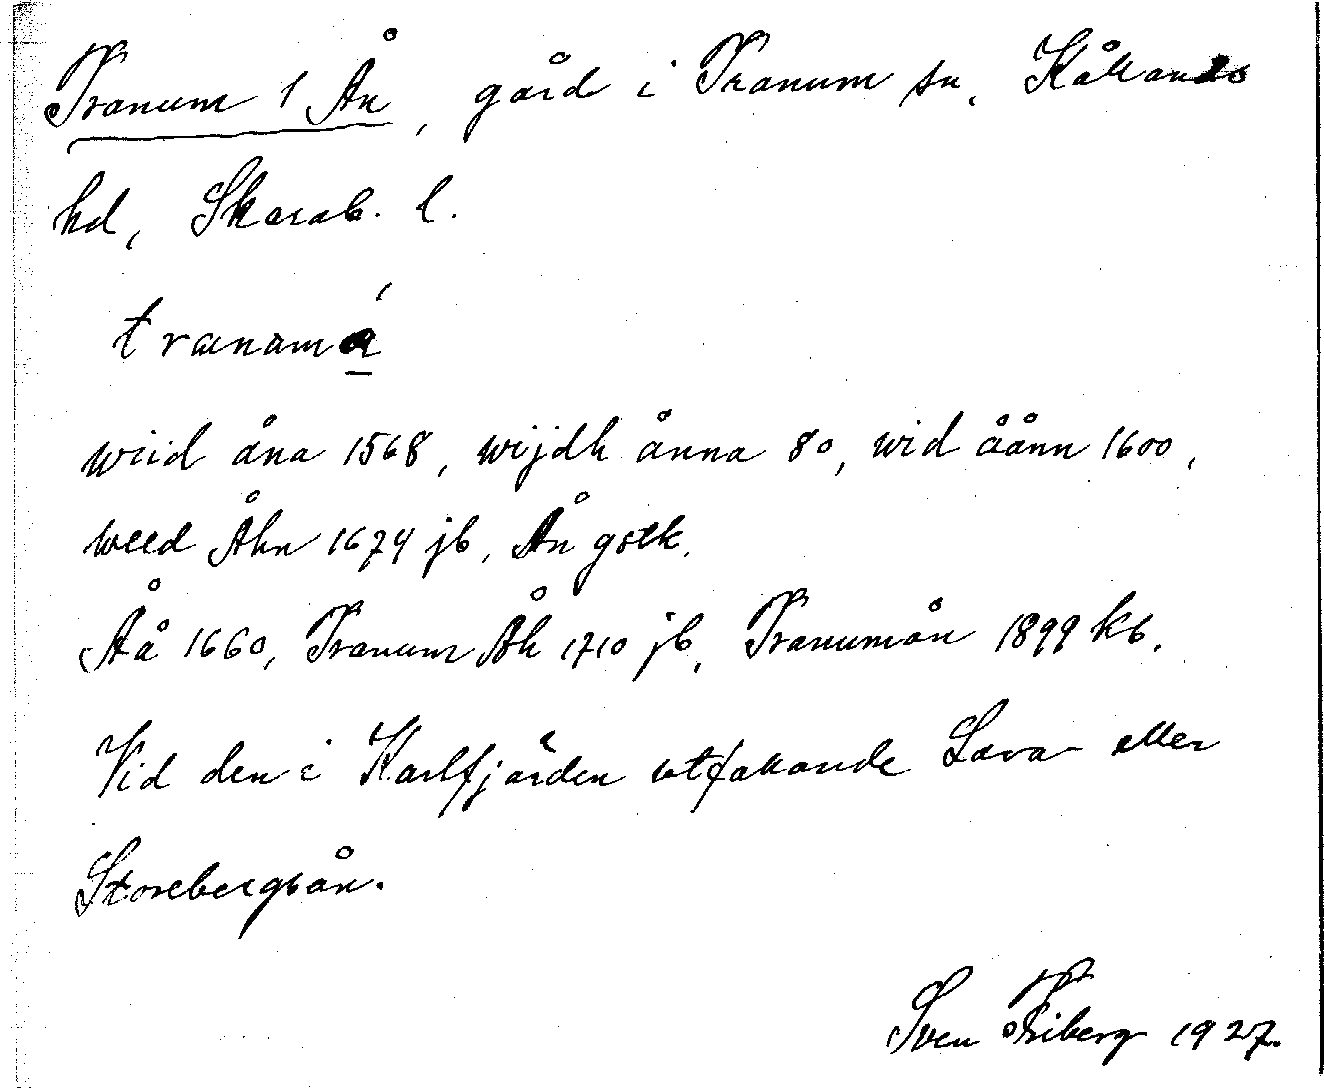 Tranum 1 Ån, gård i Tranum sn, Kållands
hd, Skarab. l.
tranamá
wiid åna 1568, wijdh ånna 80, wid åånn 1600,
weed Åhn 1674 jb, Ån gstk.
Åå 1660, Tranum Åh 1710 jb, Tranumån 1899 kb.
Vid den i Karlfjärden utfallande Lava- eller
Storebergsån.
Sven Friberg 1927.